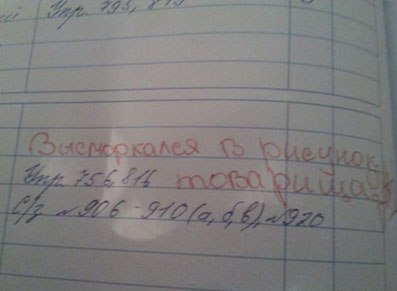 Упр. 795, 815
Высморкался в рисунок
Упр 756, 816 товарища
с/з №906-910(а,б,в), №920